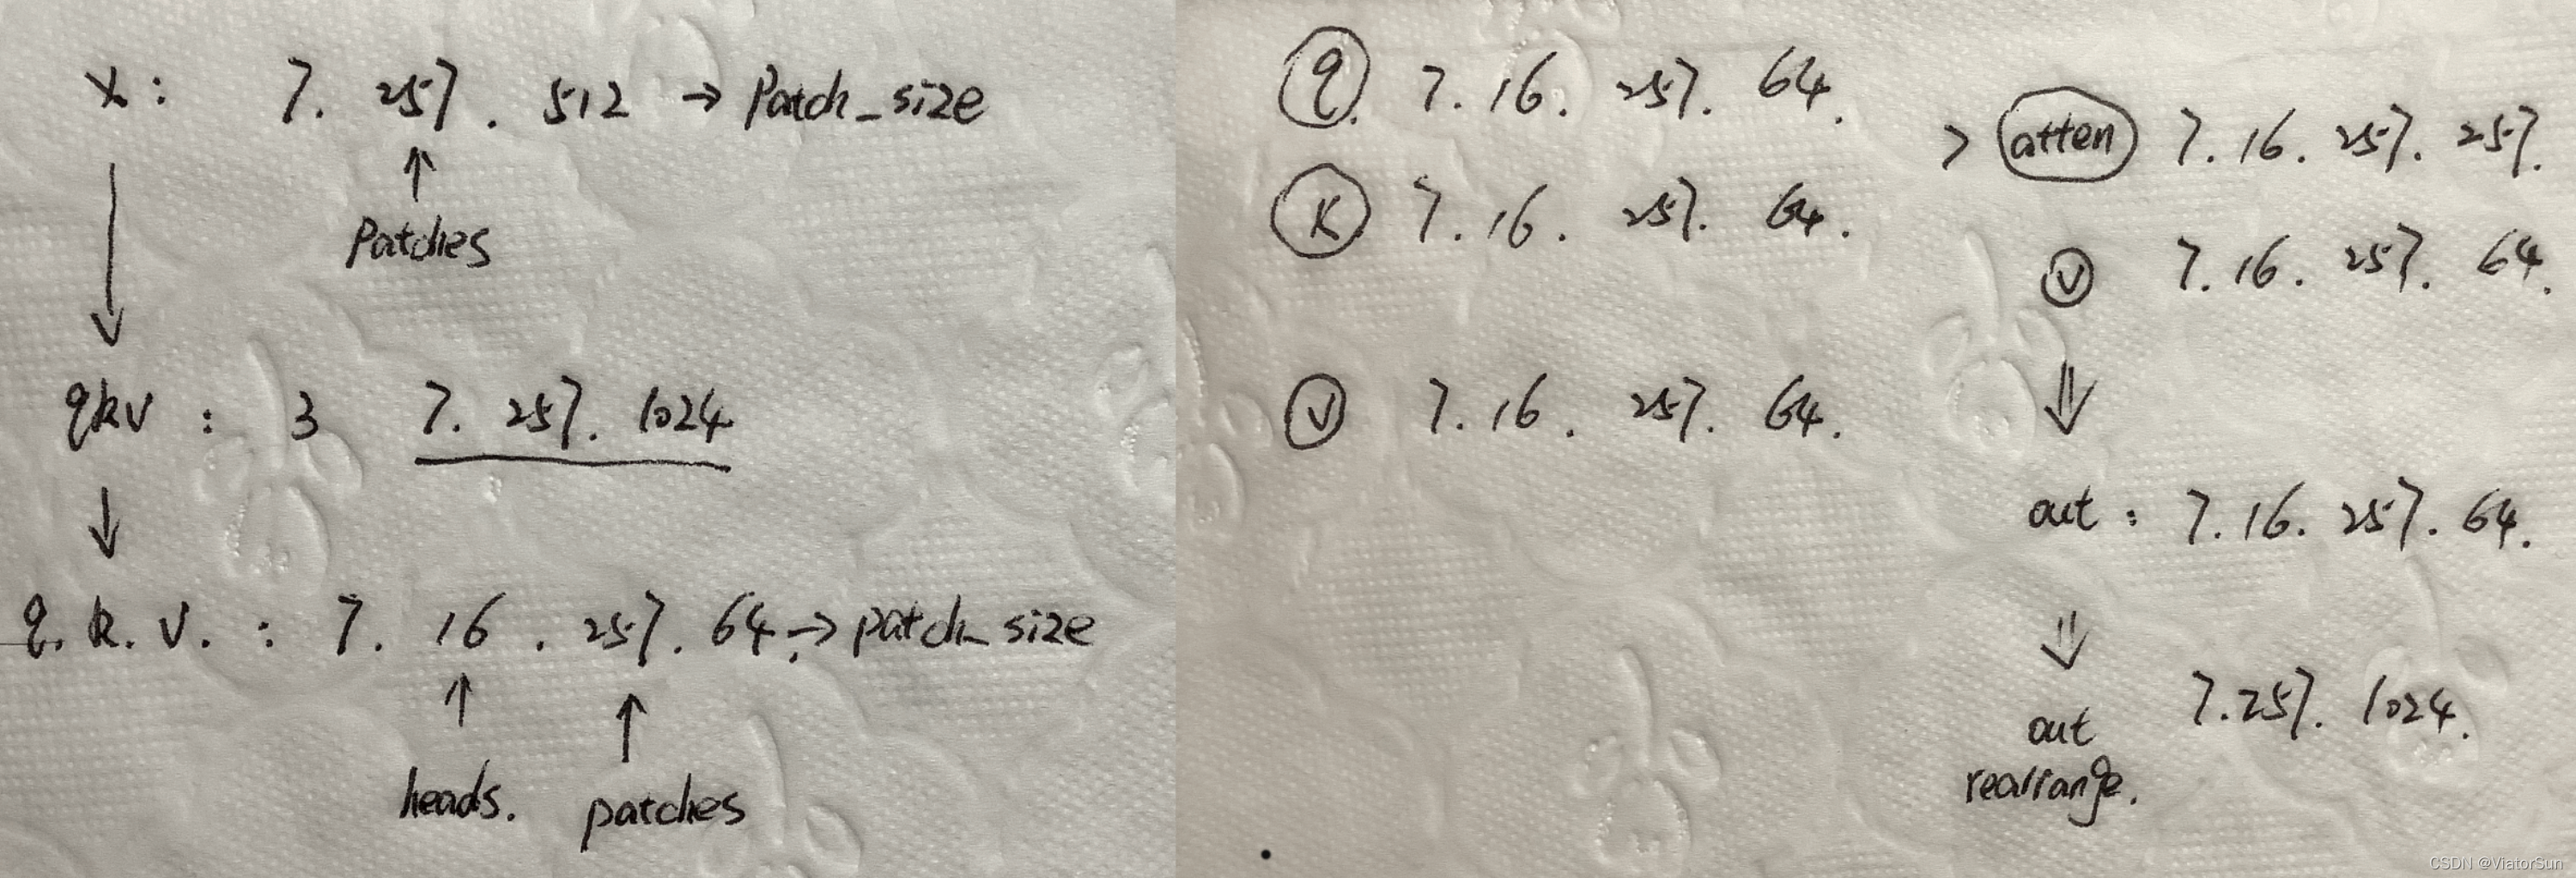 x: 7. 257. 512 → Patch_size
↑
Patches
↓
qkv : 3 7. 257. 1024
↓
q. k. v. : 7. 16. 257. 64. → patch_size
↑ ↑
heads. patches
q 7. 16. 257. 64.
K 7. 16. 257. 64.
V 7. 16. 257. 64.
> atten 7. 16. 257. 257.
V 7. 16. 257. 64.
⇓
out : 7. 16. 257. 64.
⇓
out 7. 257. 1024.
rearrange.
CSDN @ViatorSun